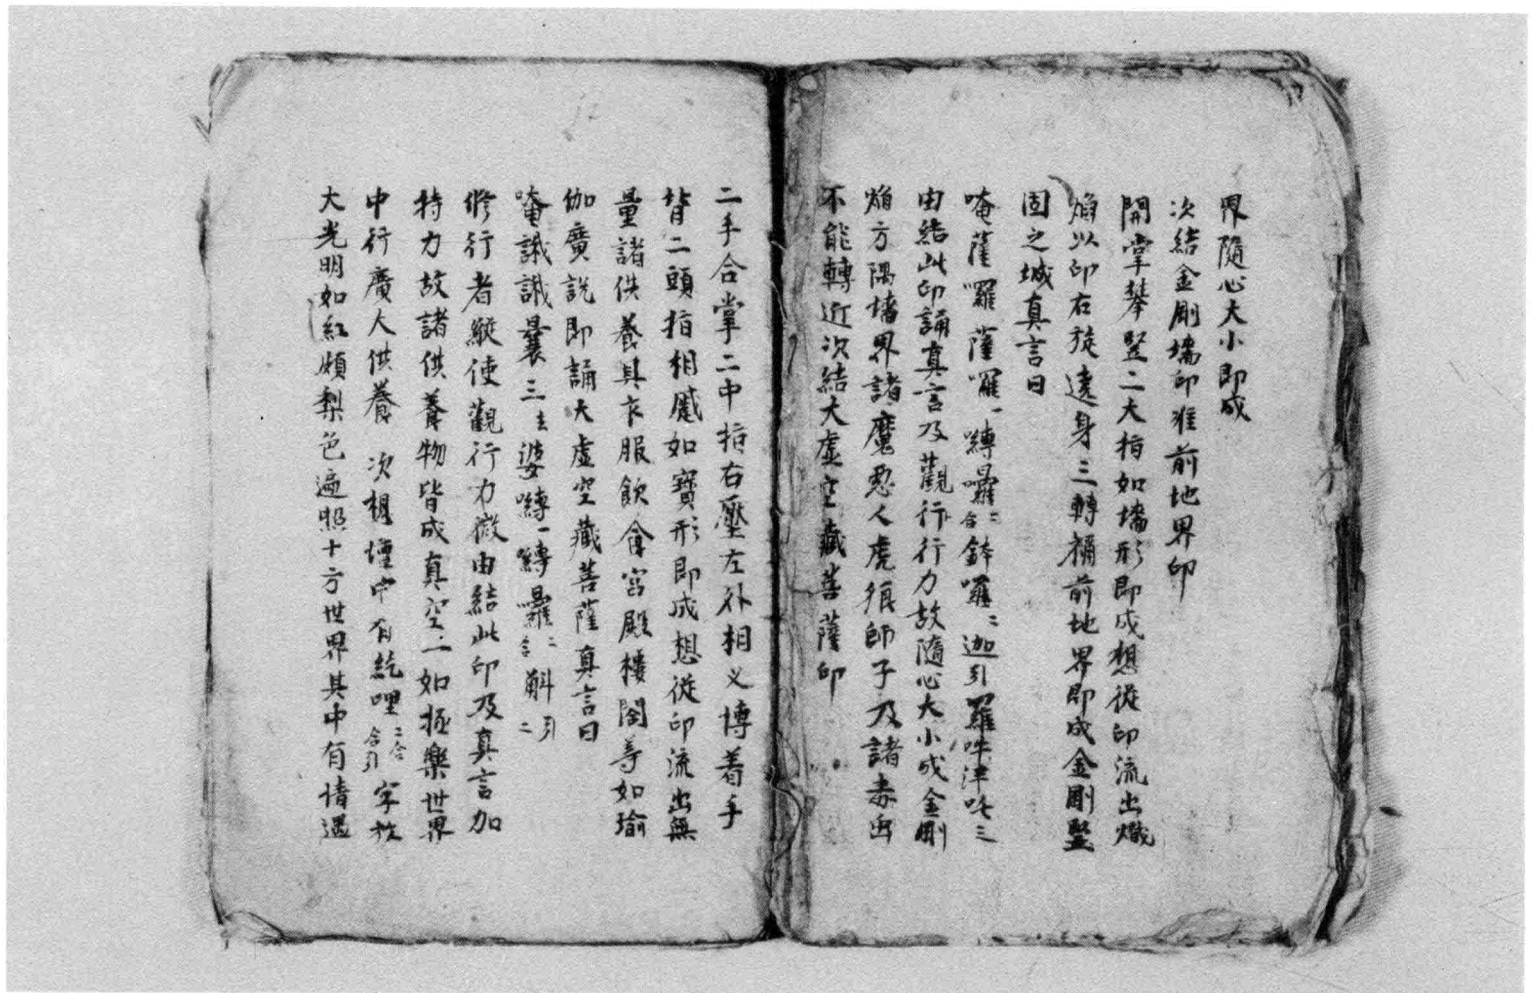 界隨心大小即成
次結金剛墻印准前地界印
開掌搩竪二大指如墻形即成想從印流出熾
焰以印右旋遶身三轉稱前地界即成金剛堅
固之城真言曰
唵薩囉薩囉一嚩曰羅二合鉢囉二迦引羅吽泮吒三
由結此印誦真言及觀行行力故隨心大小成金剛
焰方隅墻界諸魔惡人虎狼師子及諸毒虫
不能轉近次結大虛空藏菩薩印
二手合掌二中指右壓左外相叉博着手
背二頭指相蹙如寶形即成想從印流出無
量諸供養具衣服飲食宮殿樓閣等如瑜
伽廣説即誦大虛空藏菩薩真言曰
唵誐誐曩三去婆嚩一嚩曰羅二合斛引二
修行者縱使觀行力微由結此印及真言加
持力故諸供養物皆成真空一如極樂世界
中行廣大供養 次想壇中有紇哩二合引字放
大光明如紅頗梨色遍照十方世界其中有情遇